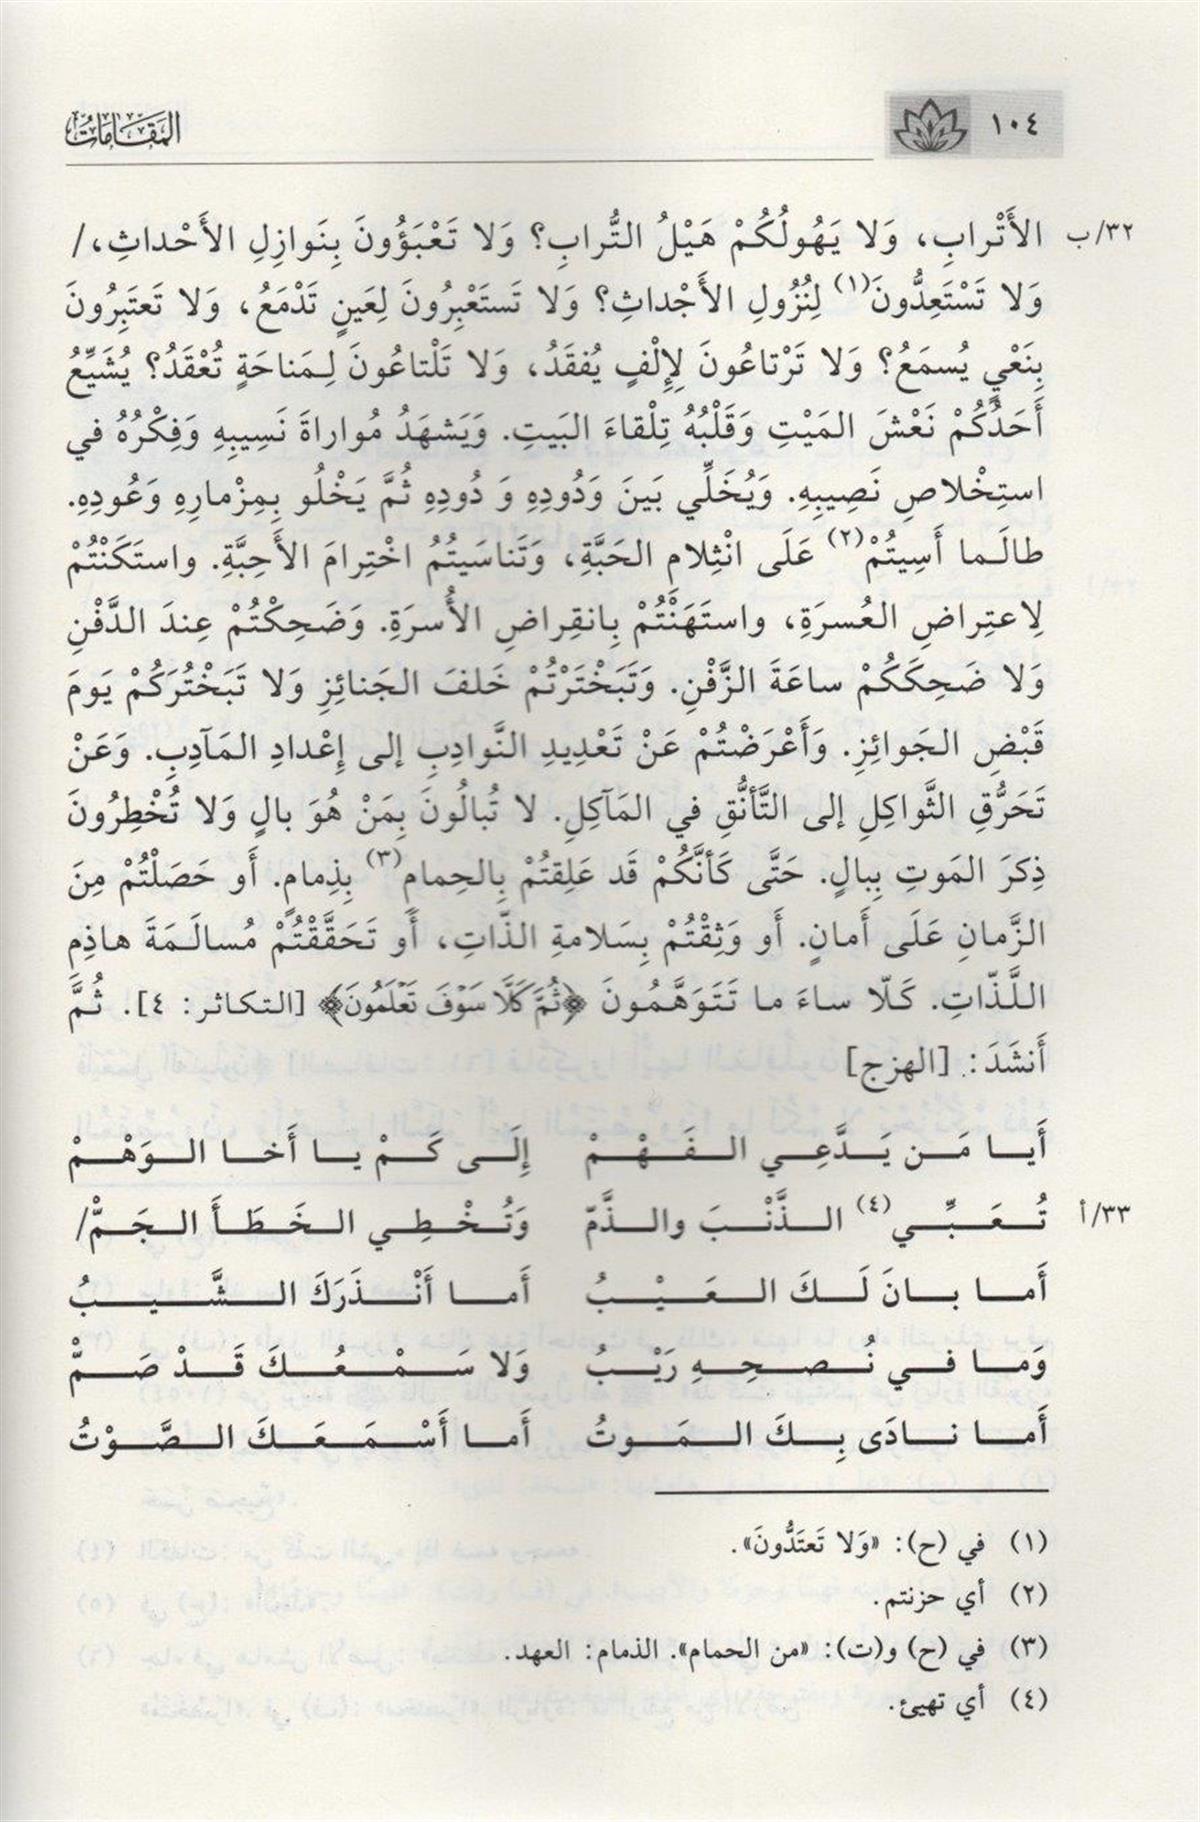 ١٠٤
المقامات
٣٢/ب الأَتْرابِ، وَلا يَهُولُكُمْ هَيْلُ التُّرابِ؟ وَلا تَعْبَؤُونَ بِنَوازِلِ الأَحْداثِ،/
وَلا تَسْتَعِدُّونَ(١) لِنُزُولِ الأَجْداثِ؟ وَلا تَستَعْبِرُونَ لِعَينٍ تَدْمَعُ، وَلا تَعتَبِرُونَ
بِنَعْيٍ يُسمَعُ؟ وَلا تَرْتاعُونَ لِإِلْفٍ يُفقَدُ، وَلا تَلْتاعُونَ لِمَناحَةٍ تُعْقَدُ؟ يُشَيِّعُ
أَحَدُكُمْ نَعْشَ المَيْتِ وَقَلْبُهُ تِلْقاءَ البَيتِ. وَيَشهَدُ مُواراةَ نَسِيبِهِ وَفِكْرُهُ في
استِخْلاصِ نَصِيبِهِ. وَيُخَلِّي بَينَ وَدُودِهِ وَ دُودِهِ ثُمَّ يَخْلُو بِمِزْمارِهِ وَعُودِهِ.
طالَما أَسِيتُمْ(٢) عَلَى انْثِلامِ الحَبَّةِ، وَتَناسَيتُمُ اخْتِرامَ الأَحِبَّةِ. واستَكَنْتُمْ
لِاعتِراضِ العُسرَةِ، واستَهَنْتُمْ بِانقِراضِ الأُسرَةِ. وَضَحِكْتُمْ عِندَ الدَّفْنِ
وَلا ضَحِكَكُمْ ساعَةَ الزَّفْنِ. وَتَبَخْتَرْتُمْ خَلفَ الجَنائِزِ وَلا تَبَخْتُرَكُمْ يَومَ
قَبْضِ الجَوائِزِ. وَأَعْرَضْتُمْ عَنْ تَعْدِيدِ النَّوادِبِ إلى إِعْدادِ المَآدِبِ. وَعَنْ
تَحَرُّقِ الثَّواكِلِ إلى التَّأنُّقِ في المَآكِلِ. لا تُبالُونَ بِمَنْ هُوَ بالٍ وَلا تُخْطِرُونَ
ذِكرَ المَوتِ بِبالٍ. حَتَّى كَأنَّكُمْ قَد عَلِقتُمْ بِالحِمامِ(٣) بِذِمامٍ. أَو حَصَلْتُمْ مِنَ
الزَّمانِ عَلَى أَمانٍ. أَو وَثِقْتُمْ بِسَلامةِ الذّاتِ، أَو تَحَقَّقْتُمْ مُسالَمَةَ هاذِمِ
اللَّذّاتِ. كَلّا ساءَ ما تَتَوَهَّمُونَ ﴿ثُمَّ كَلَّا سَوْفَ تَعْلَمُونَ﴾ [التكاثر: ٤]. ثُمَّ
أَنشَدَ: [الهزج]
أَيا مَن يَدَّعِي الفَهْمْ إِلَى كَمْ يا أَخا الوَهْمْ
٣٣/أ تُعَبِّي(٤) الذَّنْبَ والذَّمّ وَتُخْطِي الخَطَأَ الجَمّْ/
أَما بانَ لَكَ العَيْبُ أَما أَنْذَرَكَ الشَّيبُ
وَما في نُصحِهِ رَيْبُ وَلا سَمْعُكَ قَدْ صَمّْ
أَما نادَى بِكَ المَوتُ أَما أَسْمَعَكَ الصَّوْتُ
(١) في (ح): «وَلا تَعتَدُّونَ».
(٢) أي حزنتم.
(٣) في (ح) و(ت): «من الحمام». الذمام: العهد.
(٤) أي تهيئ.